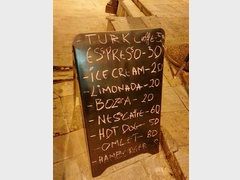 TURK Coffe-5
ESPRESSO-30
-ICE CREAM-20
-LIMONADA-20
-BOZZA-20
-NESCAFE-60
-HOT DOG-50
-OMLET-80